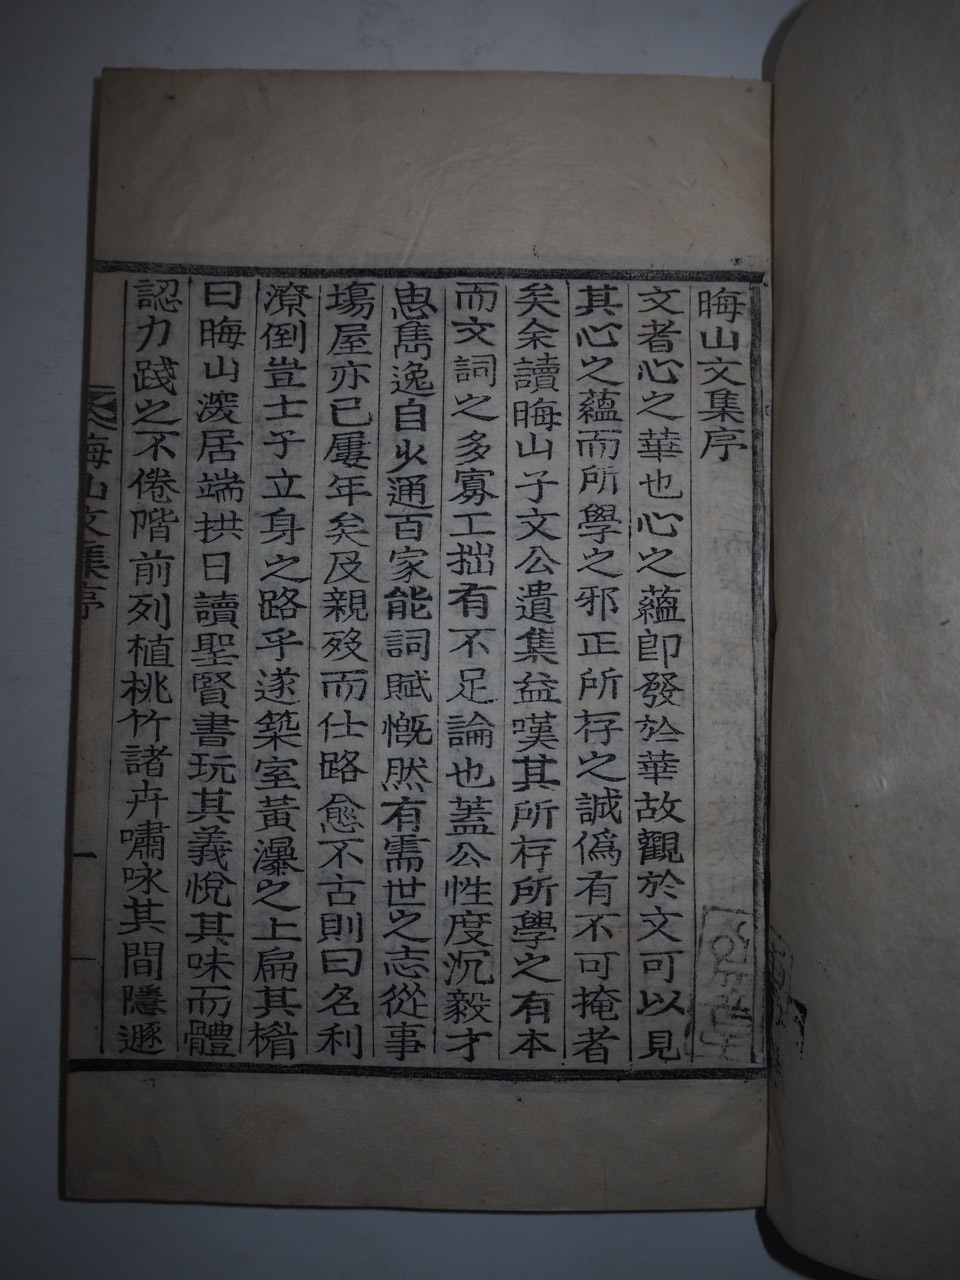 晦山文集序
文者心之華也心之蘊即發於華故觀於文可以見
其心之蘊而所學之邪正所存之誠僞有不可掩者
矣余讀晦山子文公遺集益嘆其所存所學之有本
而文詞之多寡工拙有不足論也蓋公性度沉毅才
思雋逸自少通百家能詞賦慨然有需世之志從事
塲屋亦已屢年矣及親歿而仕路愈不古則曰名利
潦倒豈士子立身之路乎遂築室黃瀑之上扁其楣
曰晦山深居端拱日讀聖賢書玩其義悅其味而體
認力踐之不倦階前列植桃竹諸卉嘯咏其間隱遯
晦山文集序
一